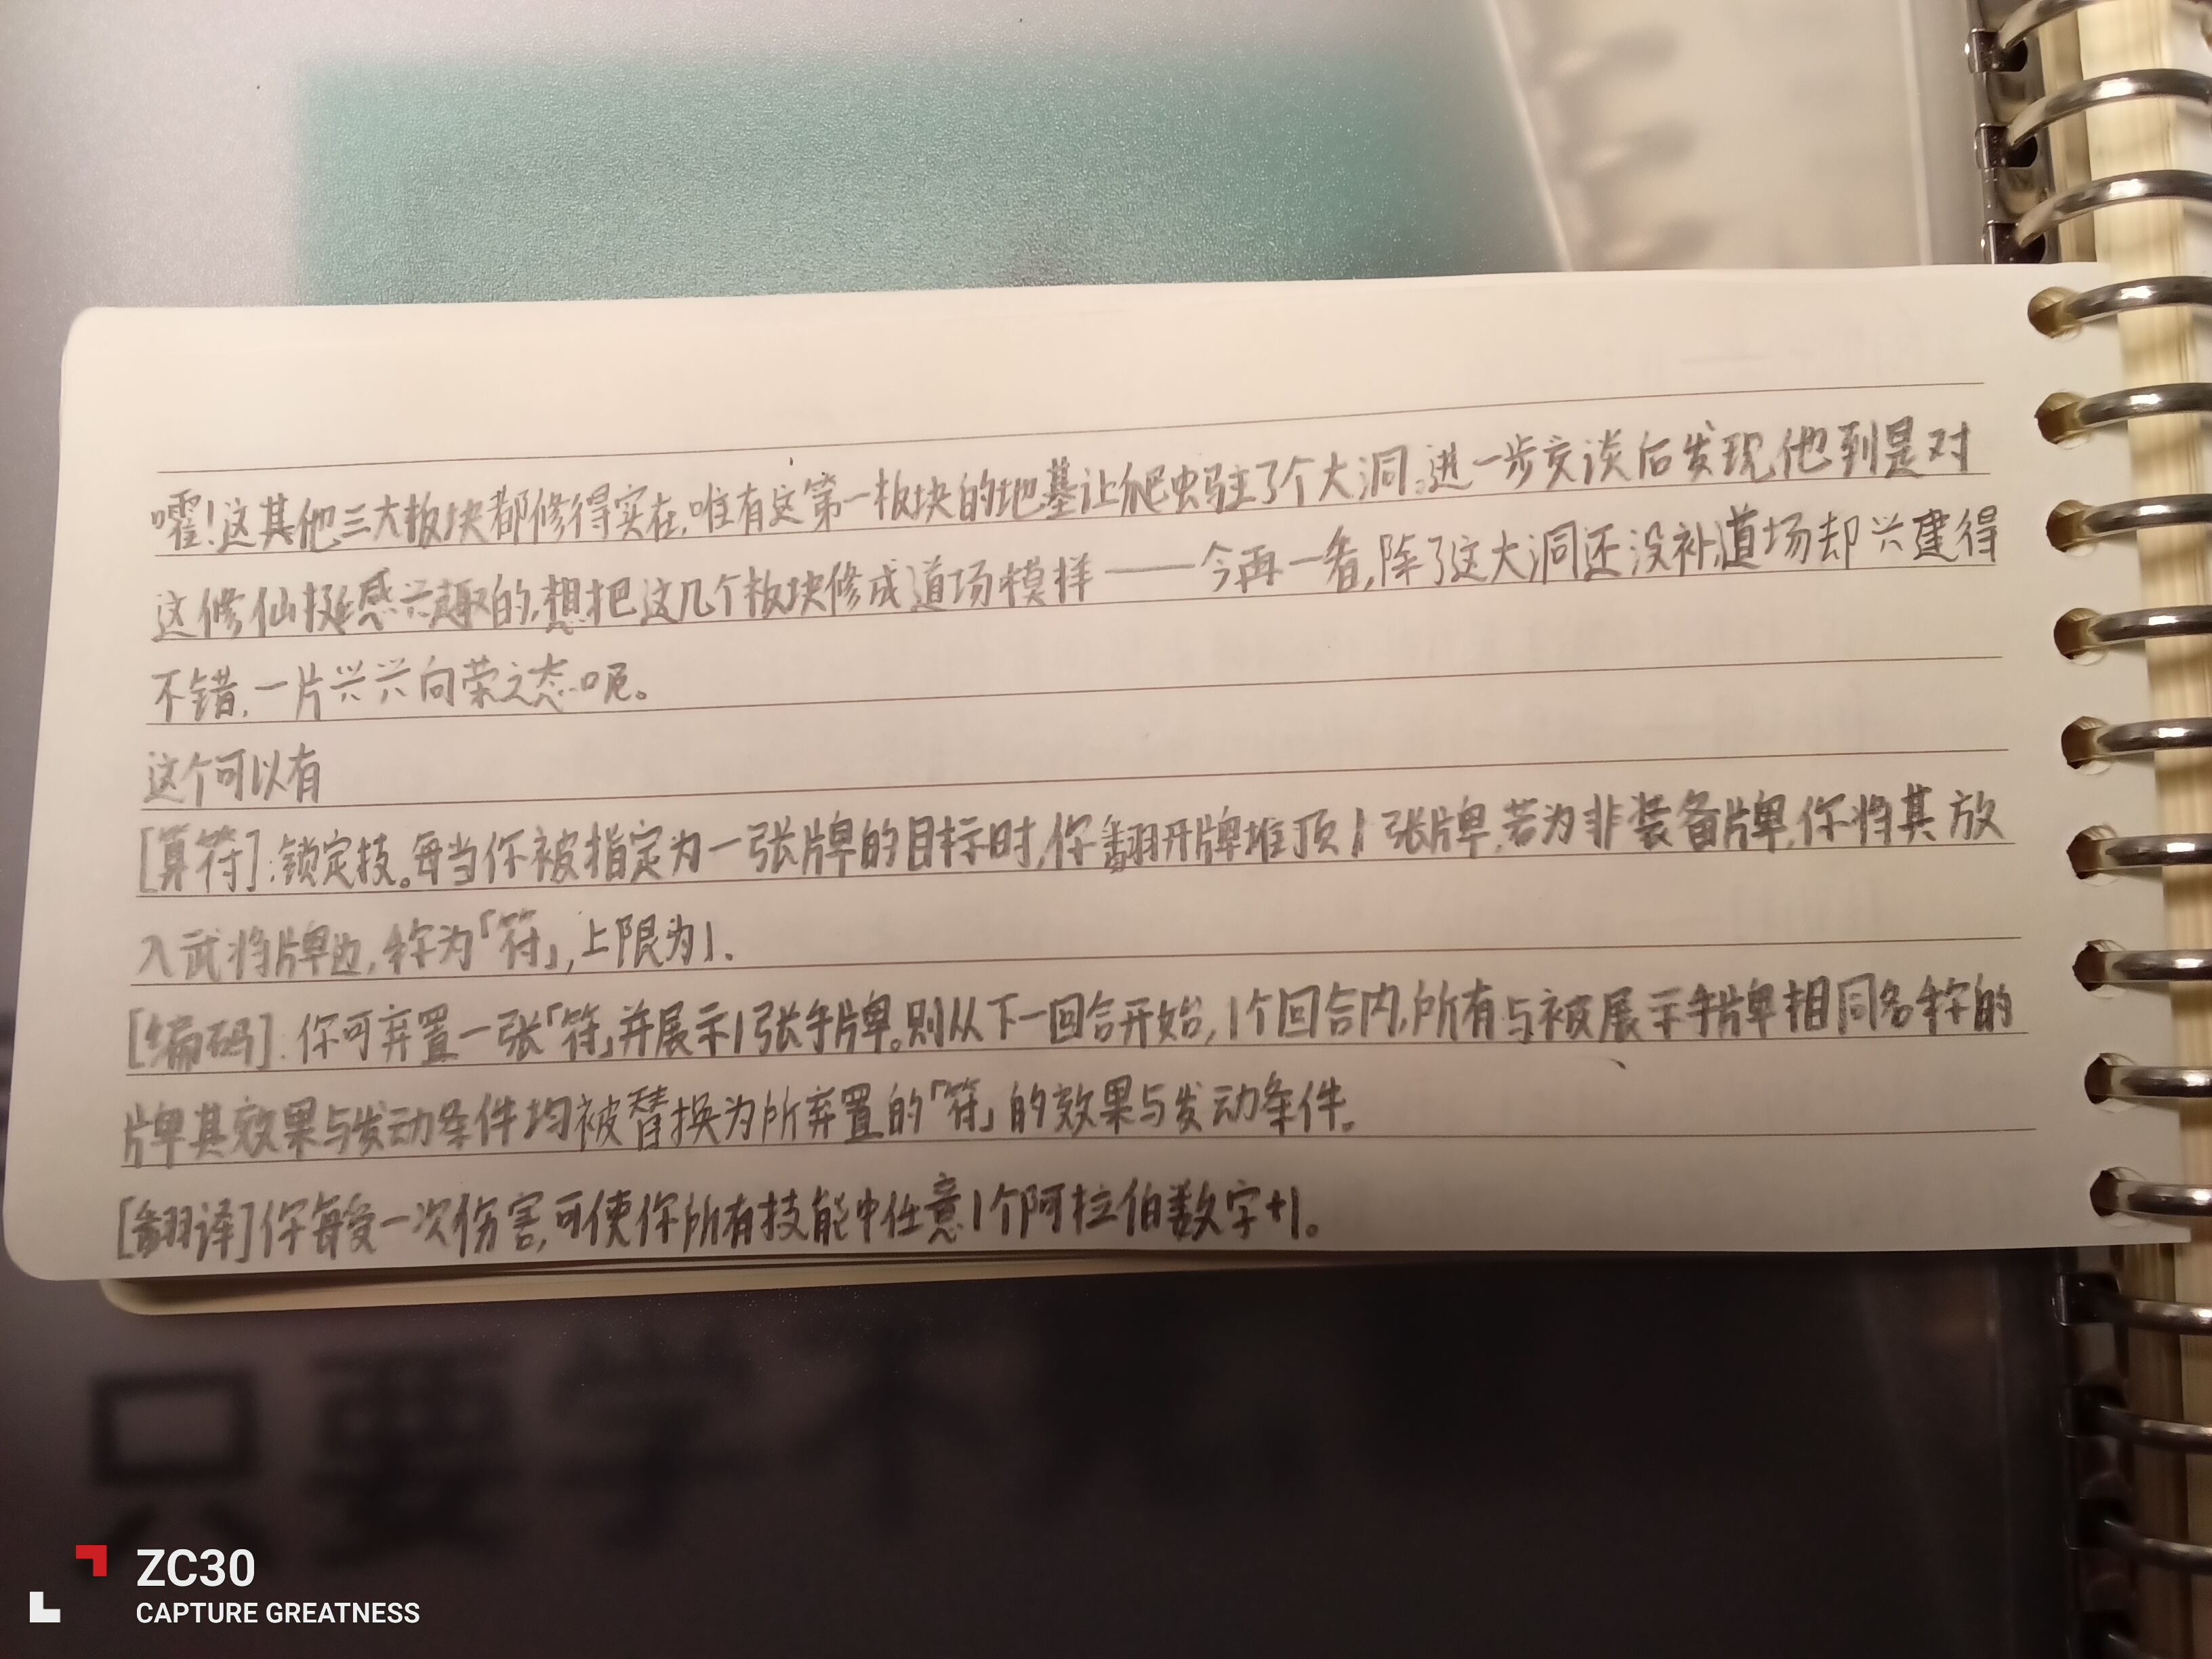 嚯！这其他三大板块都修得实在，唯有这第一板块的地基让爬虫驻了个大洞。进一步交谈后发现他到是对
这修仙挺感兴趣的，想把这几个板块修成道场模样——今再一看，除了这大洞还没补，道场却兴建得
不错，一片兴兴向荣之态呃。
这个可以有
[算符]：锁定技。每当你被指定为一张牌的目标时，你翻开牌堆顶1张牌，若为非装备牌，你将其放
入武将牌边，称为「符」，上限为1.
[编码]：你可弃置一张「符」并展示1张手牌。则从下一回合开始，1个回合内，所有与被展示手牌相同名称的
牌其效果与发动条件均被替换为所弃置的「符」的效果与发动条件。
[翻译]你每受一次伤害，可使你所有技能中任意1个阿拉伯数字+1。
只要学不
ZC30
CAPTURE GREATNESS